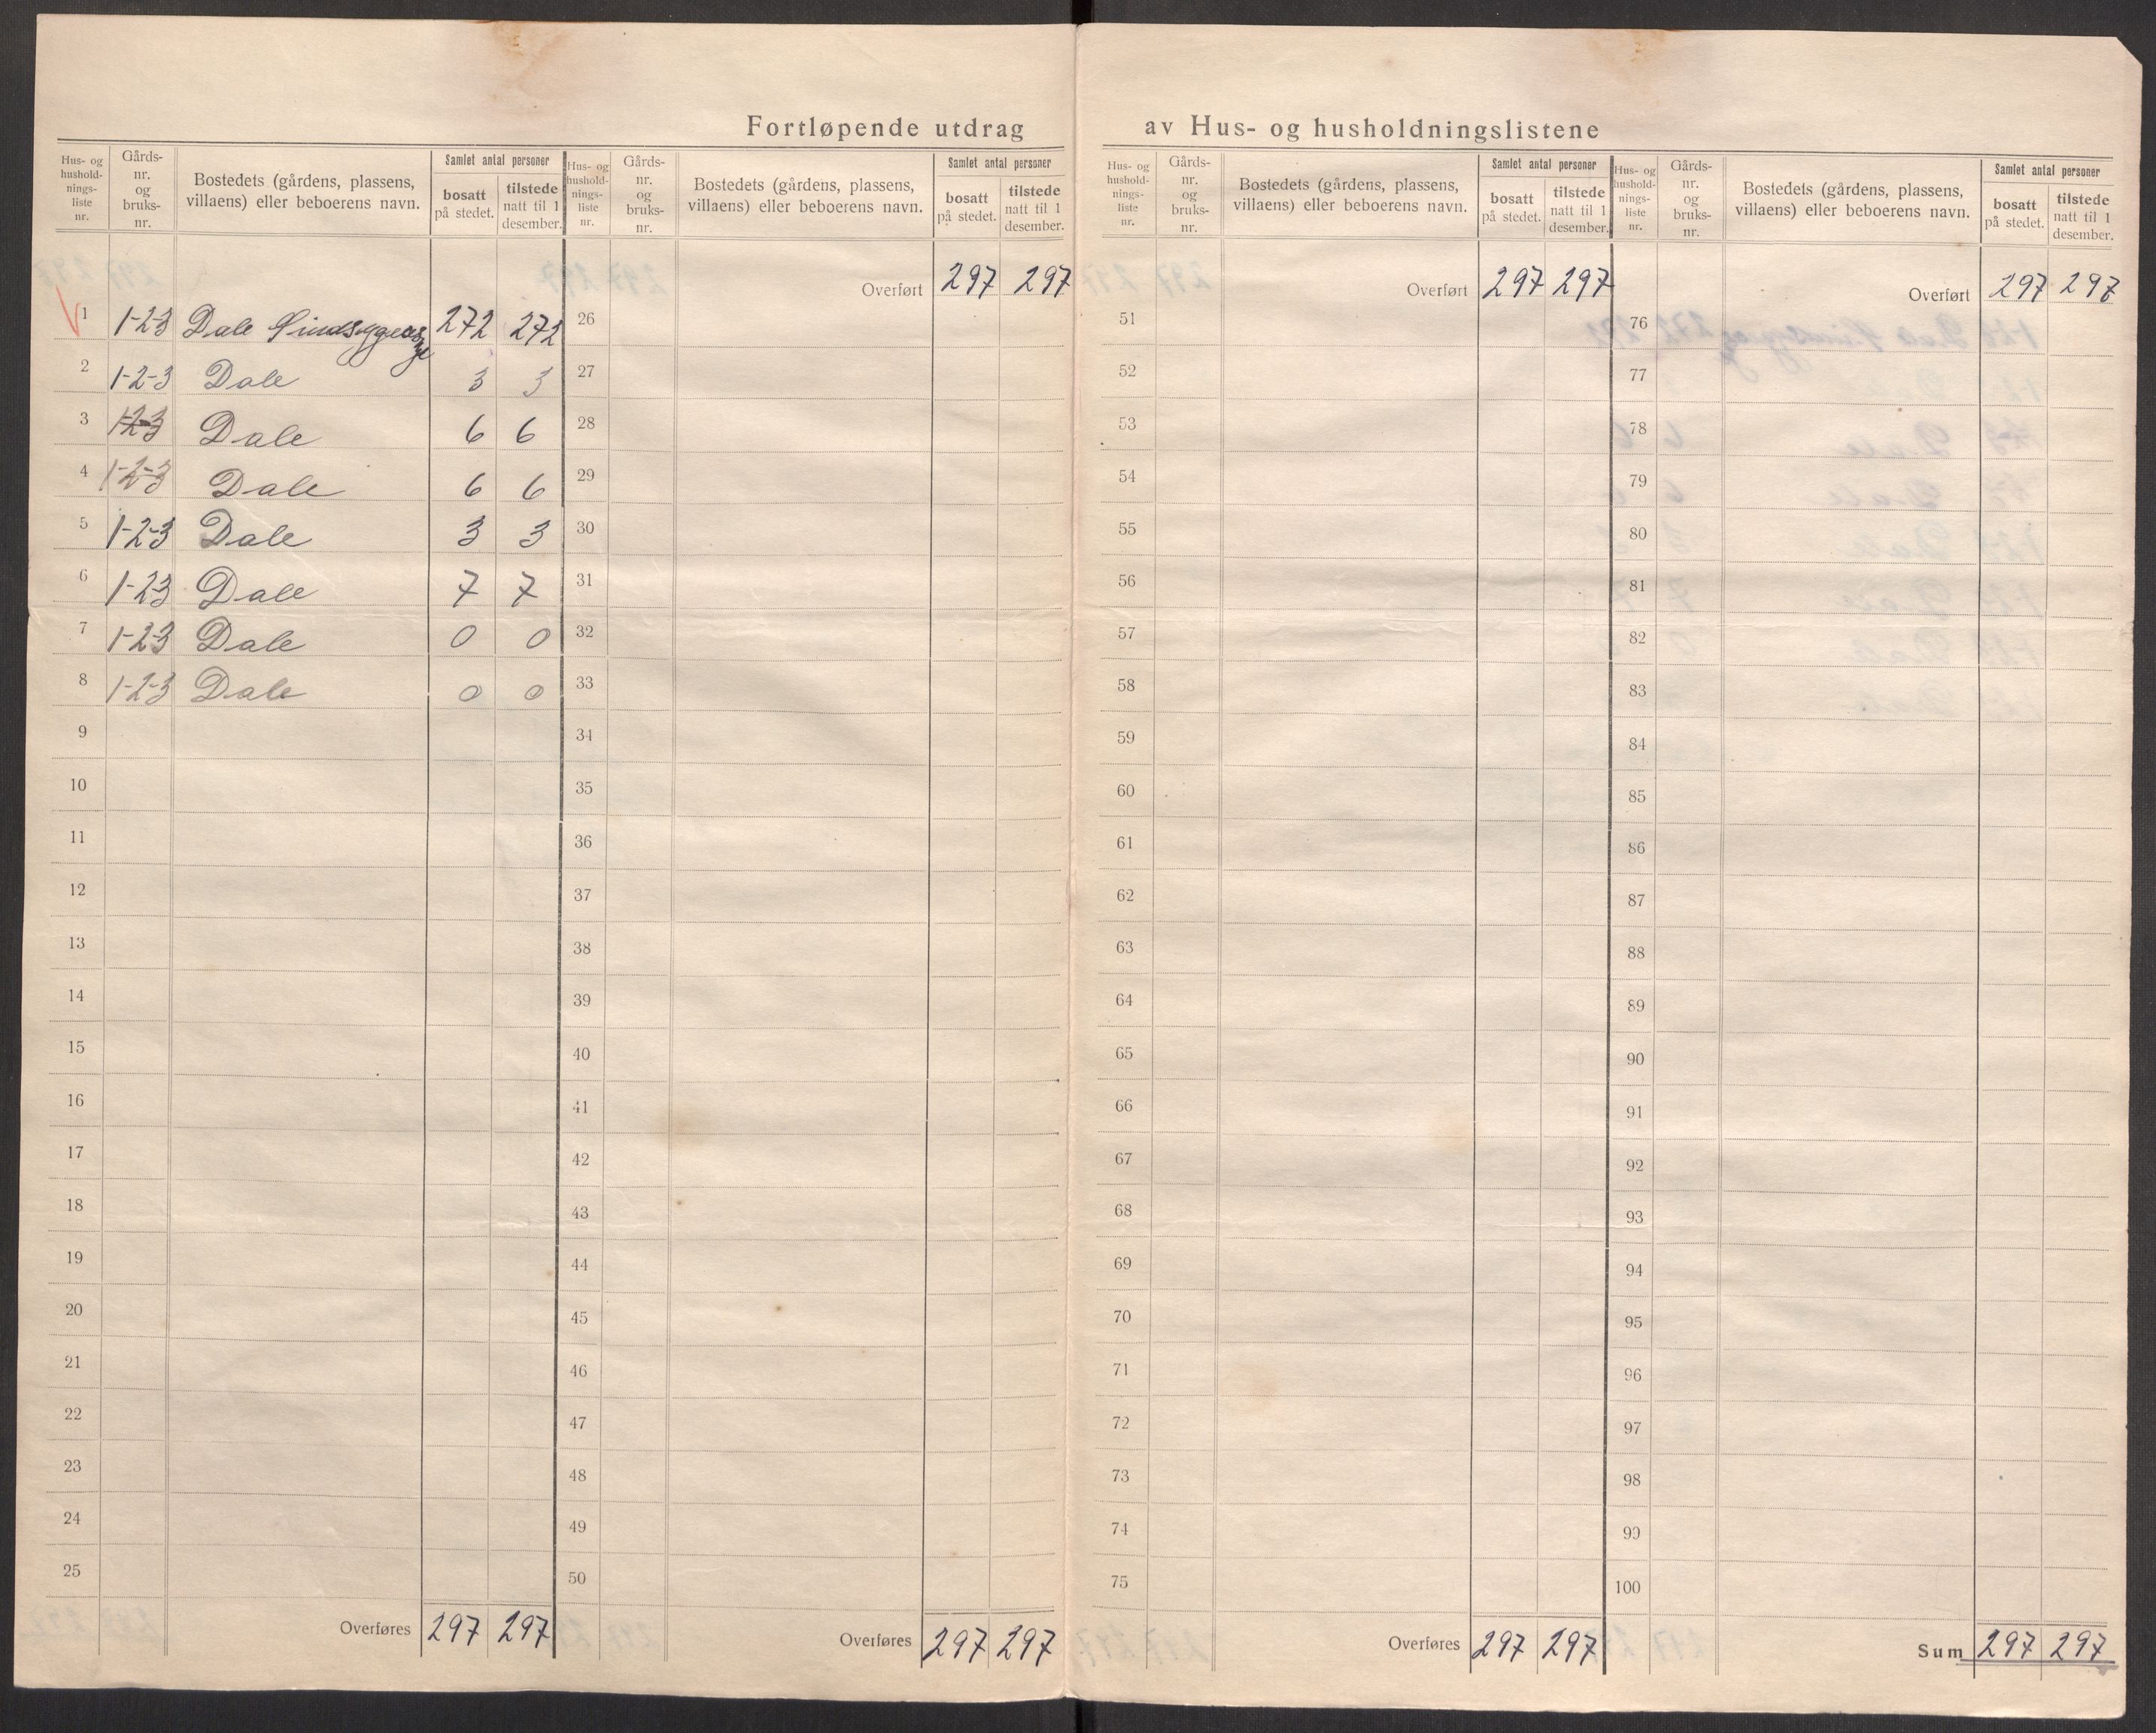 Fortløpende utdrag av Hus- og husholdningslistene
Hus- og husholdningsliste nr. | Gårds- nr. og bruks- nr. | Bostedets (gårdens, plassens, villaens) eller beboerens navn. | Samlet antal personer | bosatt på stedet. | tilstede natt til 1 desember.
1 | 1-2-3 | Dale Sindssygeasyl | 272 | 272
2 | 1-2-3 | Dale | 3 | 3
3 | 1-2-3 | Dale | 6 | 6
4 | 1-2-3 | Dale | 6 | 6
5 | 1-2-3 | Dale | 3 | 3
6 | 1-23 | Dale | 7 | 7
7 | 1-23 | Dale | 0 | 0
8 | 1-2-3 | Dale | 0 | 0
9
10
11
12
13
14
15
16
17
18
19
20
21
22
23
24
25
Overføres 297 297
Hus- og husholdningsliste nr. | Gårds- nr. og bruks- nr. | Bostedets (gårdens, plassens, villaens) eller beboerens navn. | Samlet antal personer | bosatt på stedet. | tilstede natt til 1 desember.
Overført 297 297
26
27
28
29
30
31
32
33
34
35
36
37
38
39
40
41
42
43
44
45
46
47
48
49
50
Overføres 297 297
Hus- og husholdningsliste nr. | Gårds- nr. og bruks- nr. | Bostedets (gårdens, plassens, villaens) eller beboerens navn. | Samlet antal personer | bosatt på stedet. | tilstede natt til 1 desember.
Overført 297 297
51
52
53
54
55
56
57
58
59
60
61
62
63
64
65
66
67
68
69
70
71
72
73
74
75
Overføres 297 297
Hus- og husholdningsliste nr. | Gårds- nr. og bruks- nr. | Bostedets (gårdens, plassens, villaens) eller beboerens navn. | Samlet antal personer | bosatt på stedet. | tilstede natt til 1 desember.
Overført 297 297
76
77
78
79
80
81
82
83
84
85
86
87
88
89
90
91
92
93
94
95
96
97
98
99
100
Sum 297 297